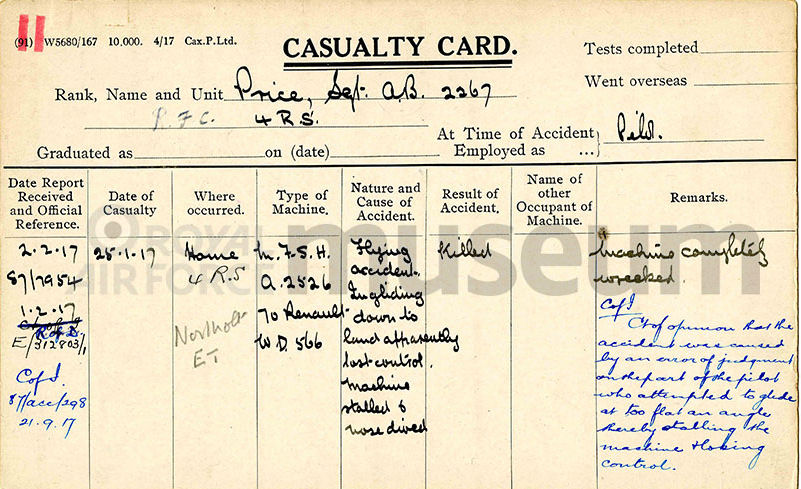 (91) W5680/167 10,000. 4/17 Cax.P.Ltd.
CASUALTY CARD.
Tests completed
Went overseas
Rank, Name and Unit Price, Sgt. A.B. 2267
R.F.C. 4 R.S.
At Time of Accident
Employed as ...
Pilot.
Graduated as on (date)
Date Report
Received
and Official
Reference.
Date of
Casualty
Where
occurred.
Type of
Machine.
Nature and
Cause of
Accident.
Result of
Accident.
Name of
other
Occupant of
Machine.
Remarks.
2.2.17
87/7954
1.2.17
R of D.
E/312803/1
C of I.
87/acc/298
21.9.17
25.1.17
Home
4 R.S
Northolt
ET
M.F.S.H.
A.2526
70 Renault
W.D. 566
Flying
accident.
In gliding
down to
land apparently
lost control.
Machine
stalled &
nose dived
Killed
Machine completely
wrecked.
C of I
Ct of opinion that the
accident was caused
by an error of judgment
on the part of the pilot
who attempted to glide
at too flat an angle
thereby stalling the
machine & losing
control.
ROYAL
AIR FORCE
museum